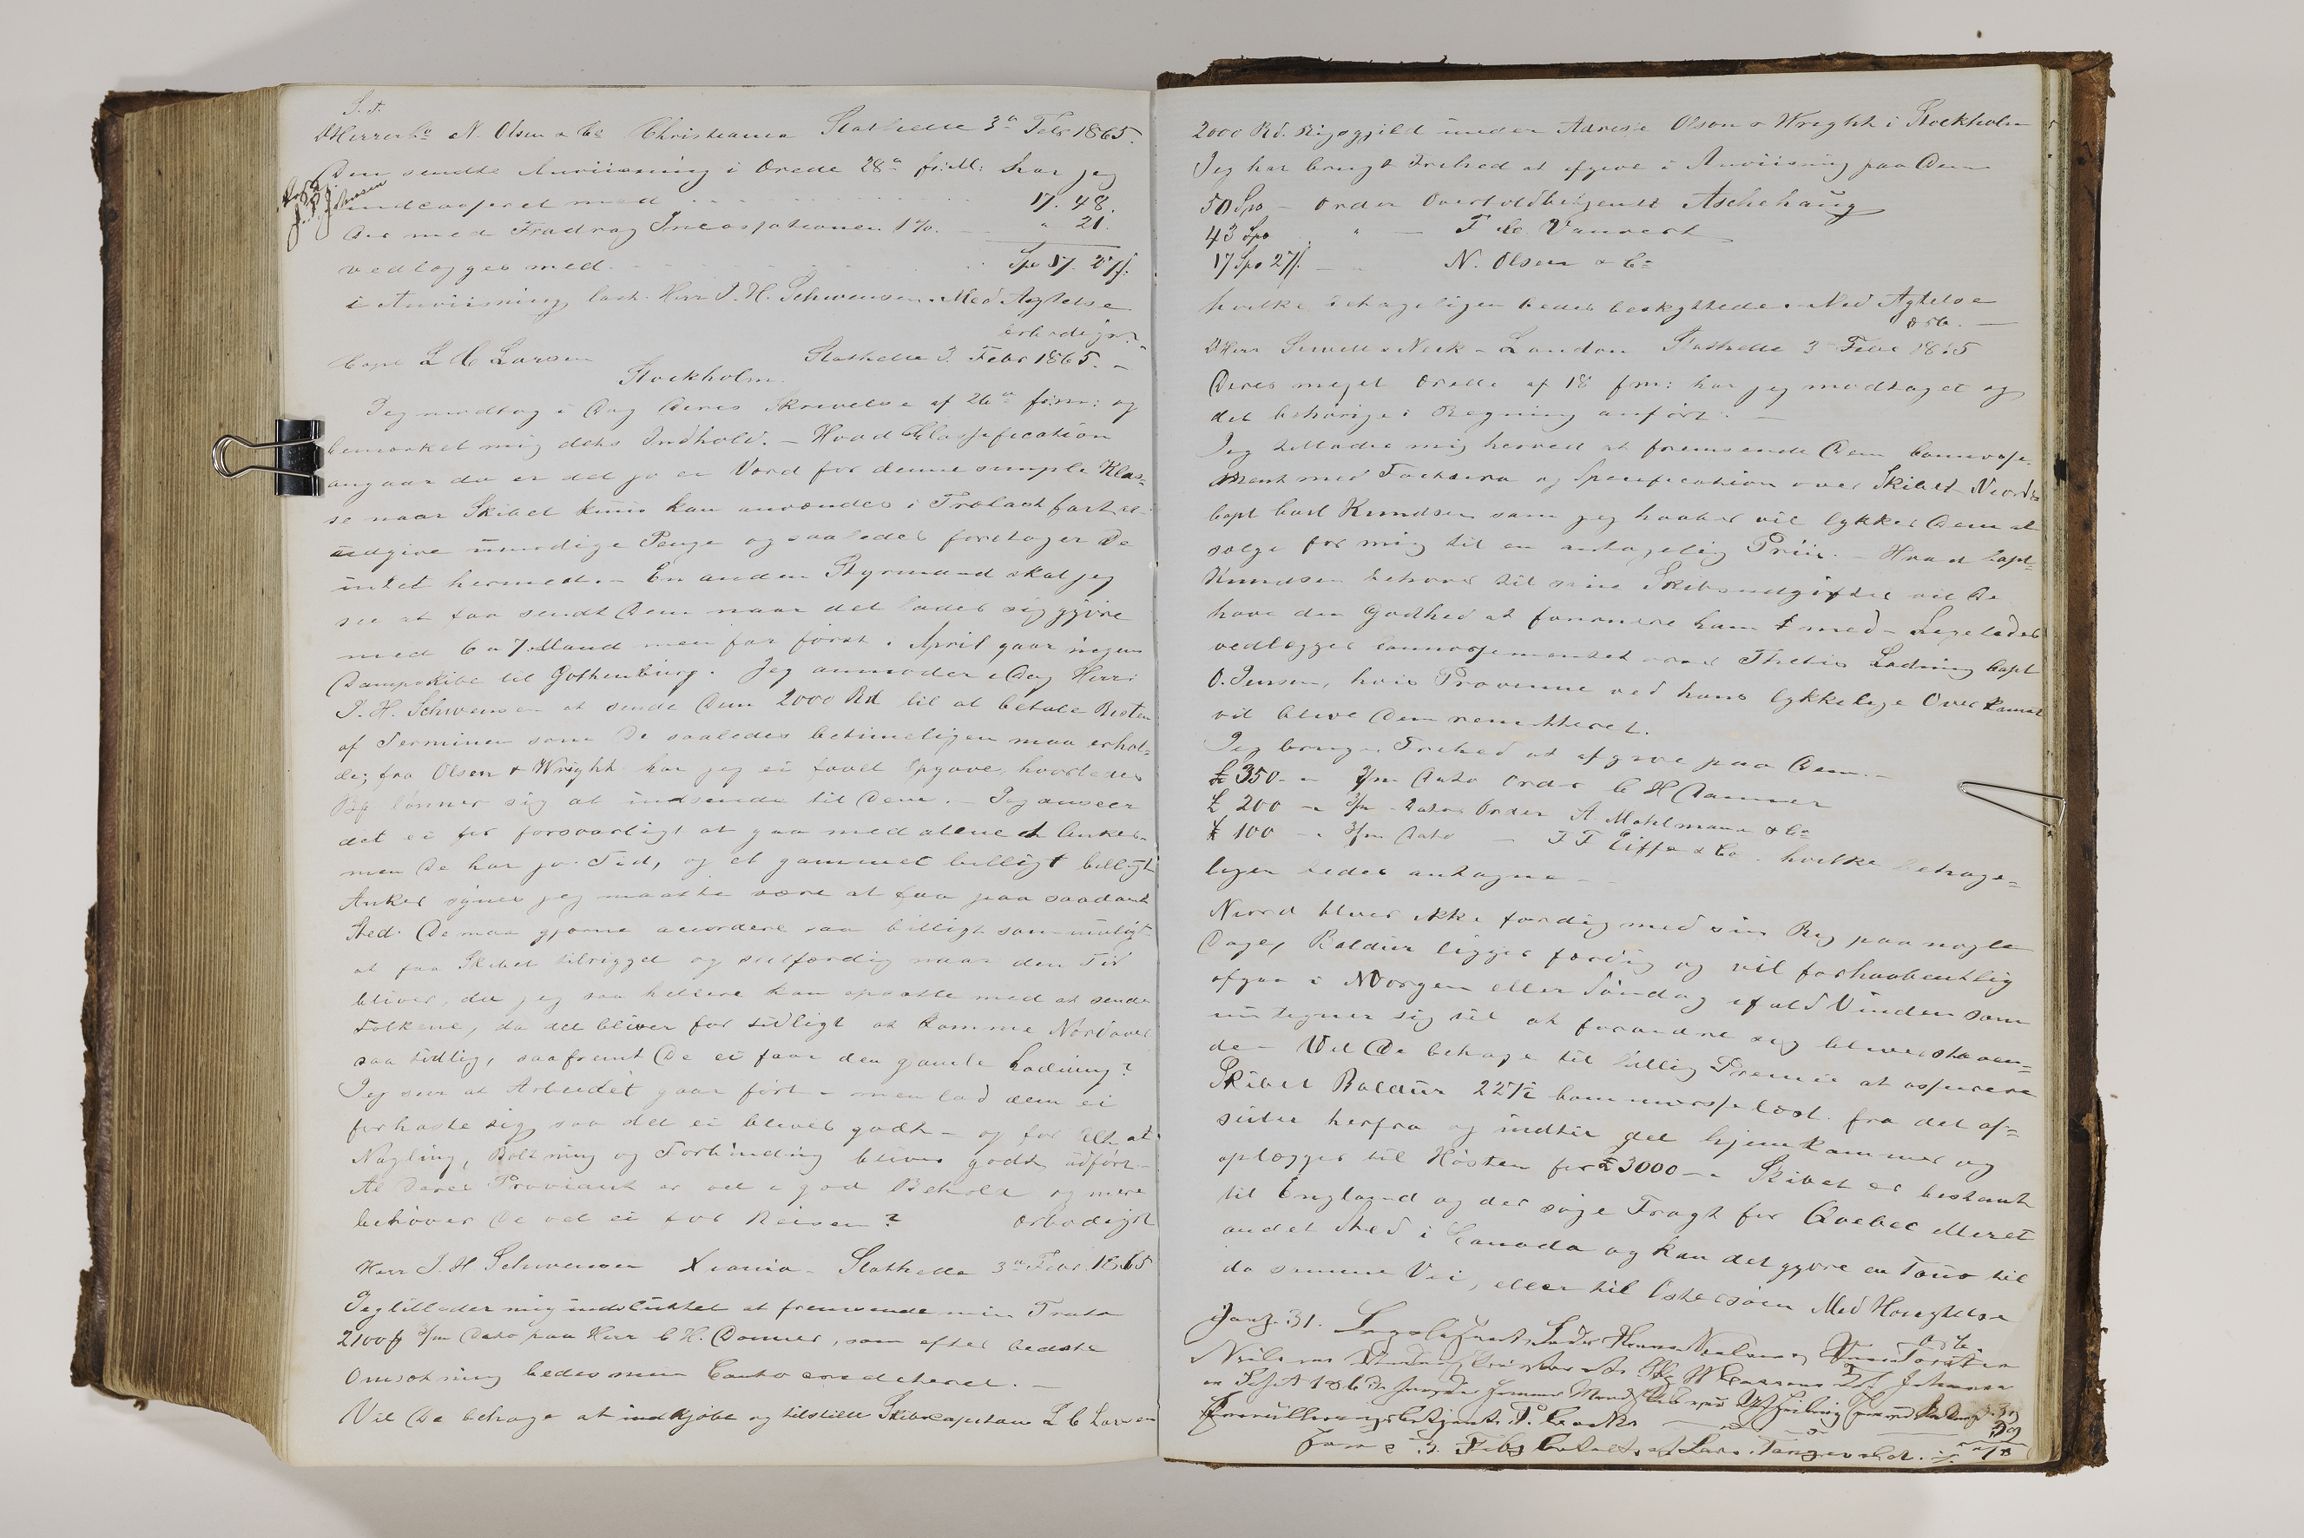 S. T.
Herrer N. Olsen & Co Christiania Stathelle 3 Febr 1865.
Den sendte Anviisning i Ærede 28 f: M: har jeg
indcasseret med 17. 48.
der med Fradrag Incassationen 1% " 21.
vedlægges med Spd 17. 27 s.
i Anviisning hos Herr J. H. Schwensen. Med Agtelse
ærbødigst
Capt L C Larsen Stathelle 3 Febr 1865. –
Stockholm.
Jeg modtog i Dag Deres Skrivelse af 26 f: m: og
bemærket mig dets Indhold. – Hvad Classification
angaar da er det jo ei Værd for denne simple Klas=
se naar Skibet kuns kan anvendes i Trælast fart at
udgive unødige Penge og saaledes foretager De
intet hermed. – En anden Styrmand skal jeg
see at faa sendt Dem naar det lader sig gjøre
med 6 a 7 Mand men før først i April gaar ingen
Dampskibe til Gothenburg. Jeg anmoder i Dag Herr
J. H. Schwensen at sende Dem 2000 Rd til at betale Resten
af Terminen som De saaledes betimeligen maa erhol=
de; fra Olsen & Wright har jeg ei faaet Opgave, hvorledes
det lønner sig at indsende til Dem. – Jeg anseer
det ei for forsvarligt at gaa med alene et Anker –
men De har jo Tid, og et gammelt billigt billigt
Anker synes jeg maatte være at faa paa saadant
Sted. De maa gjerne accordere saa billigt som muligt
at faa Skibet tilrigget og seilfærdig naar den Tid
bliver, da jeg saa hellere kan opsætte med at sende
Folkene, da det bliver for tidligt at komme Nordover
saa tidlig, saafremt De ei faar den gamle Ladning?
Jeg seer at Arbeidet gaar fort – men lad dem ei
forhaste sig, saa det ei bliver godt – og for Alt at
Nagling, Boltning og Forbinding bliver godt udført –
Al Deres Proviant er vel i god Behold og mere
behøver De vel ei for Reisen? ærbødigst
Herr J. H Schwensen Xrania – Stathelle 3 Febr. 1865
Jeg tillader mig indsluttet at fremsende min Tratte
2100 3/m Dato paa Herr C. H. Donner, som efter bedste
Omsætning bedes min Conto crediteret. –
Vil De behage at indkjøbe og tilstille Skibscapitain L C Larsen
2000 Rd. Rigsgjeld under Adresse Olson & Wright i Stockholm
Jeg har brugt Frihed at afgive i Anviisning paa Dem
50 Spd – Ordre Overtoldbetjent Aschehaug
43 Spd " – F. C.
17 Spd 27 s. – " N. Olsen & Co
hvilke behageligen bedes beskyttede. Med Agtelse
Herr Sewell & Neck – London Stathelle 3 Febr 1865
Deres meget Ærede af 18 f m: har jeg modtaget og
det behørige i Regning anført. –
Jeg tillader mig herved at fremsende Dem Connosse=
ment med Factura og Specification over Skibet Niord
Capt Carl Knudsen som jeg haaber vil lykkes Dem at
sælge for mig til en antagelig Priis. – Hvad Capt=
Knudsen behøver til sine Skibsudgifter vil De
have den Godhed at fournere ham med – Ligeledes
vedlægges Connossementet over Thetis Ladning Capt
O. Jensen, hvis Provenue ved hans lykkelige Overkomst
vil blive Dem remitteret.
Jeg bruger Frihed at afgive paa Dem. –
£ 350 – " 3/m Dato Ordre C H Donner
£ 200 – " 3/m Dato Ordre A. Mohlmann & Co
£ 100 – " 3/m Dato – F F Eiffe & Co. hvilke behage=
ligen bedes antagne –
Niord bliver ikke færdig med sin Rig paa nogle
Dage, Baldur ligger færdig og vil forhaabentlig
afgaa i Morgen eller Søndag ifald Vinden som
nu tegner sig til at forandre sig bliver staaen=
de – Vil De behage til billig Præmie at assurere
Skibet Baldur 227½ Commerselæst. fra det af=
seiler herfra og indtil det hjemkommer og
oplægges til Høsten for £ 3000 – " Skibet er bestemt
til England og der søge Fragt for Quebec eller et
andet Sted i Canada og kan det gjøre en Tour til
da samme Vei, eller til Østersøen Med Høiagtelse
Janr. 31.